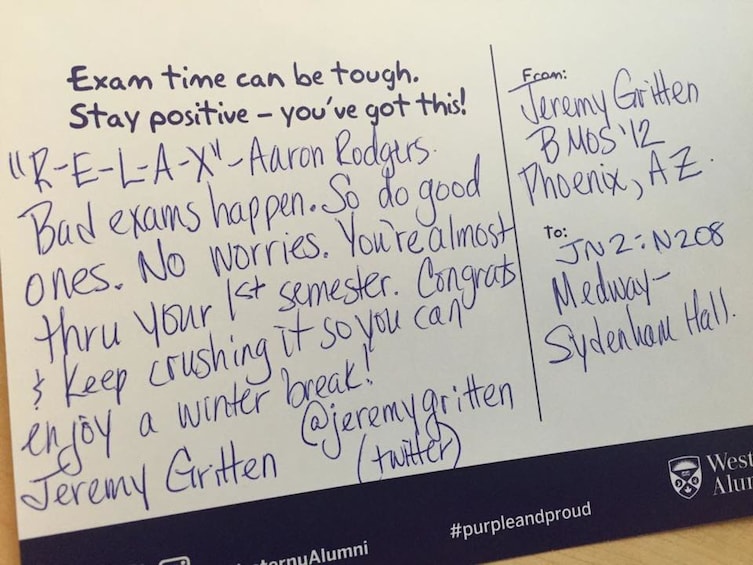 Exam time can be tough.
Stay positive – you've got this!
"R-E-L-A-X" - Aaron Rodgers.
Bad exams happen. So do good
ones. No worries. You're almost
thru your 1st semester. Congrats
& keep crushing it so you can
enjoy a winter break!
Jeremy Gritten @jeremygritten
(twitter)
From:
Jeremy Gritten
BMOS '12
Phoenix, AZ.
To:
JN2:N208
Medway-
Sydenham Hall.
#purpleandproud